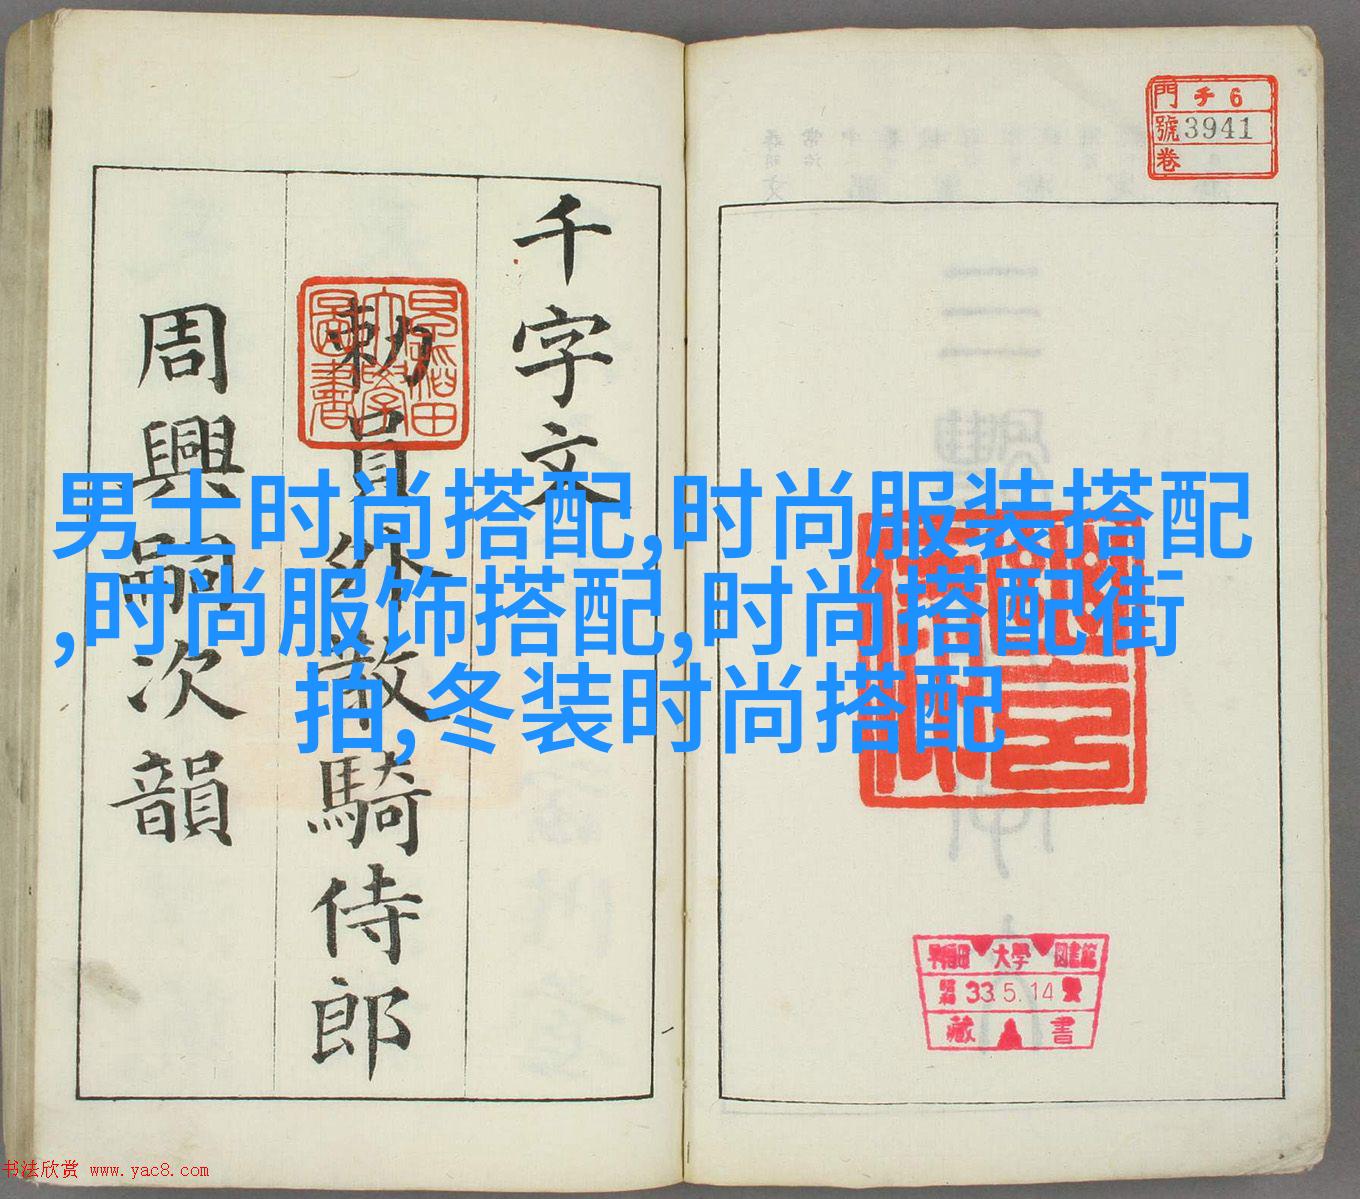 千字文
勅員外散騎侍郎
周興嗣次韻
早稻田大學圖書
門 チ 6
號 3941
卷
男士时尚搭配,时尚服装搭配
,时尚服饰搭配,时尚搭配街
拍,冬装时尚搭配
早稻田 大學 図書館
33.5.14
藏 書
书法欣赏 www.yac8.com